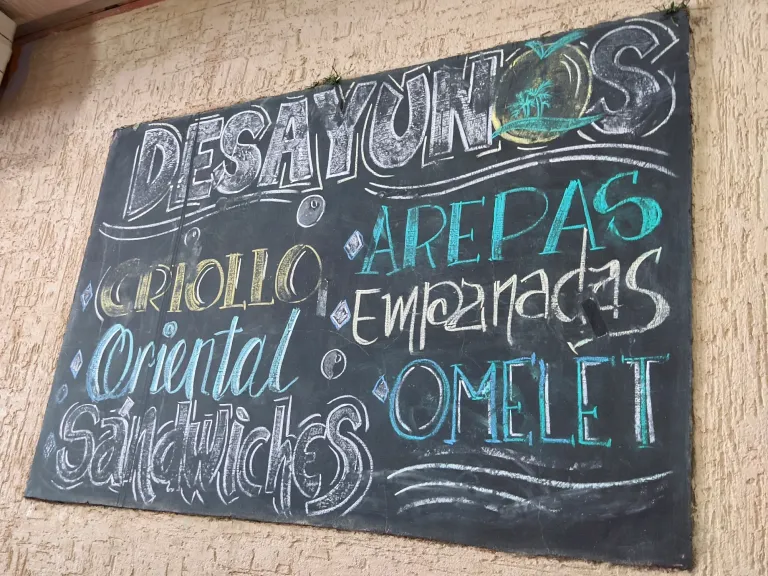 DESAYUNOS
CRIOLLO
Oriental
Sándwiches
AREPAS
Empanadas
OMELET